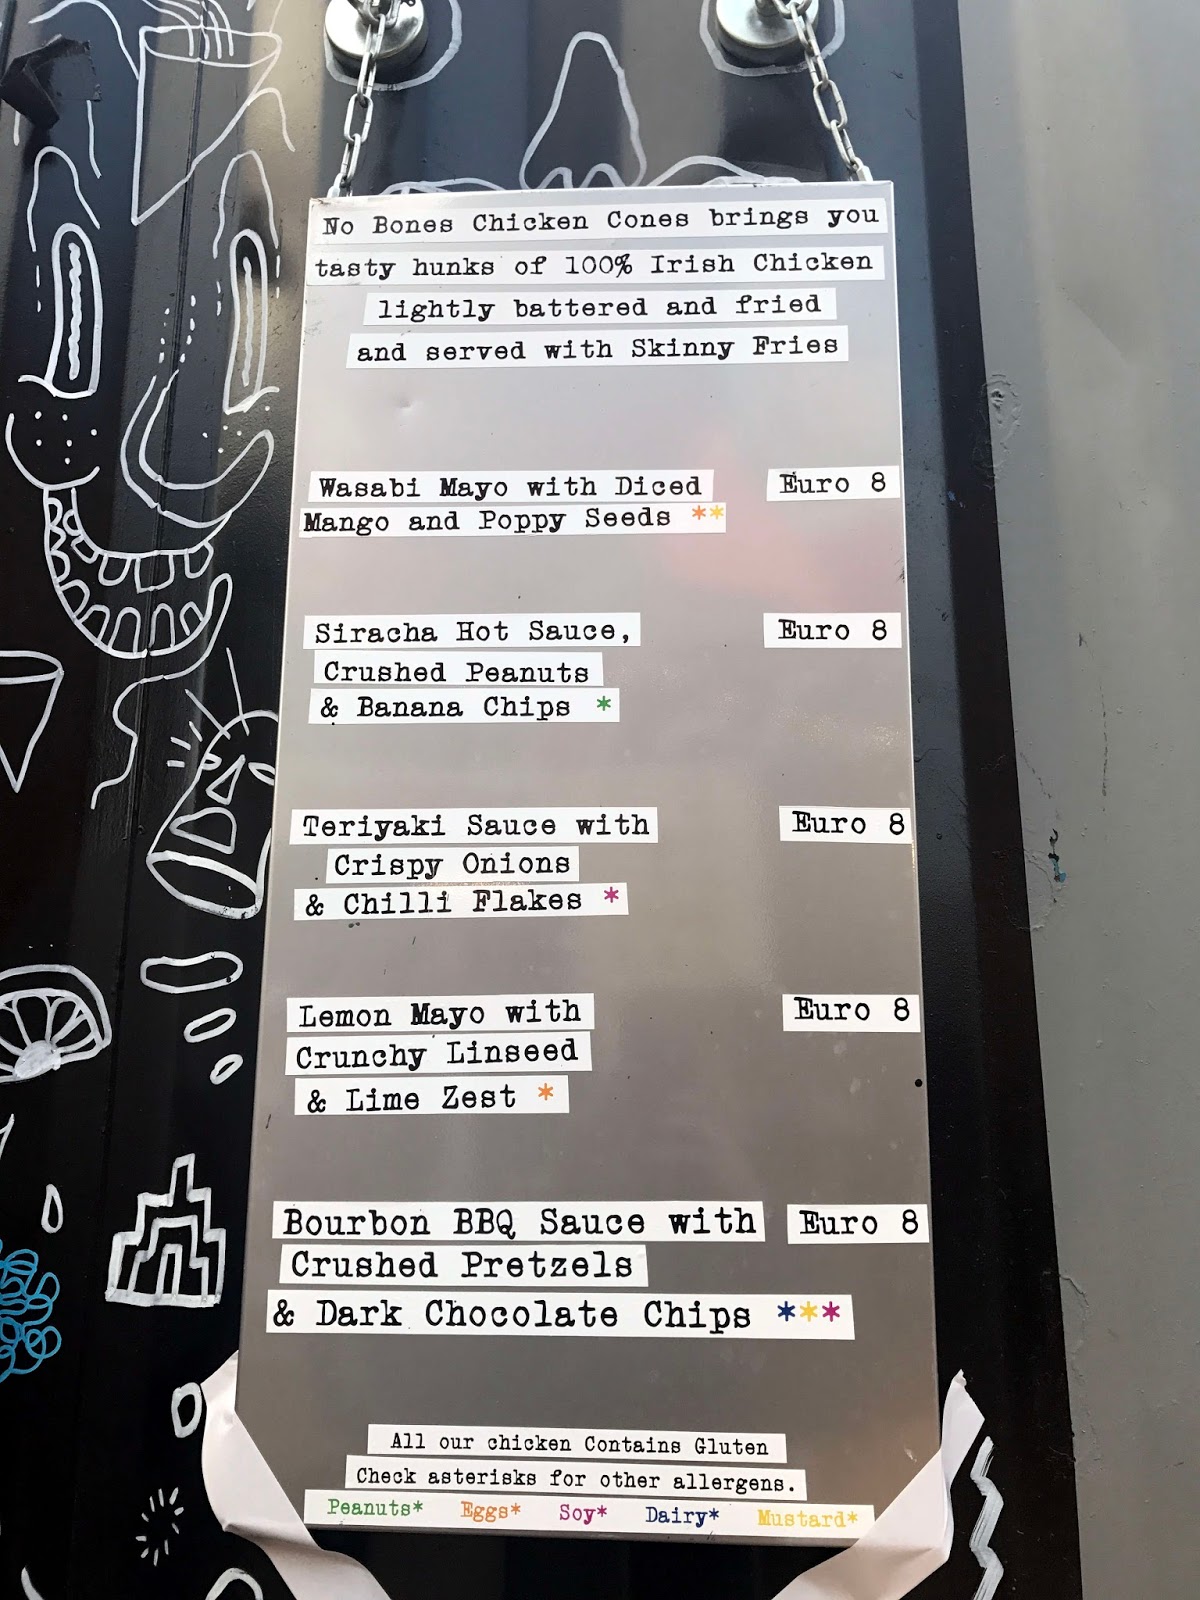 No Bones Chicken Cones brings you
tasty hunks of 100% Irish Chicken
lightly battered and fried
and served with Skinny Fries
Wasabi Mayo with Diced Euro 8
Mango and Poppy Seeds **
Siracha Hot Sauce, Euro 8
Crushed Peanuts
& Banana Chips *
Teriyaki Sauce with Euro 8
Crispy Onions
& Chilli Flakes *
Lemon Mayo with Euro 8
Crunchy Linseed
& Lime Zest *
Bourbon BBQ Sauce with Euro 8
Crushed Pretzels
& Dark Chocolate Chips ***
All our chicken Contains Gluten
Check asterisks for other allergens.
Peanuts* Eggs* Soy* Dairy* Mustard*